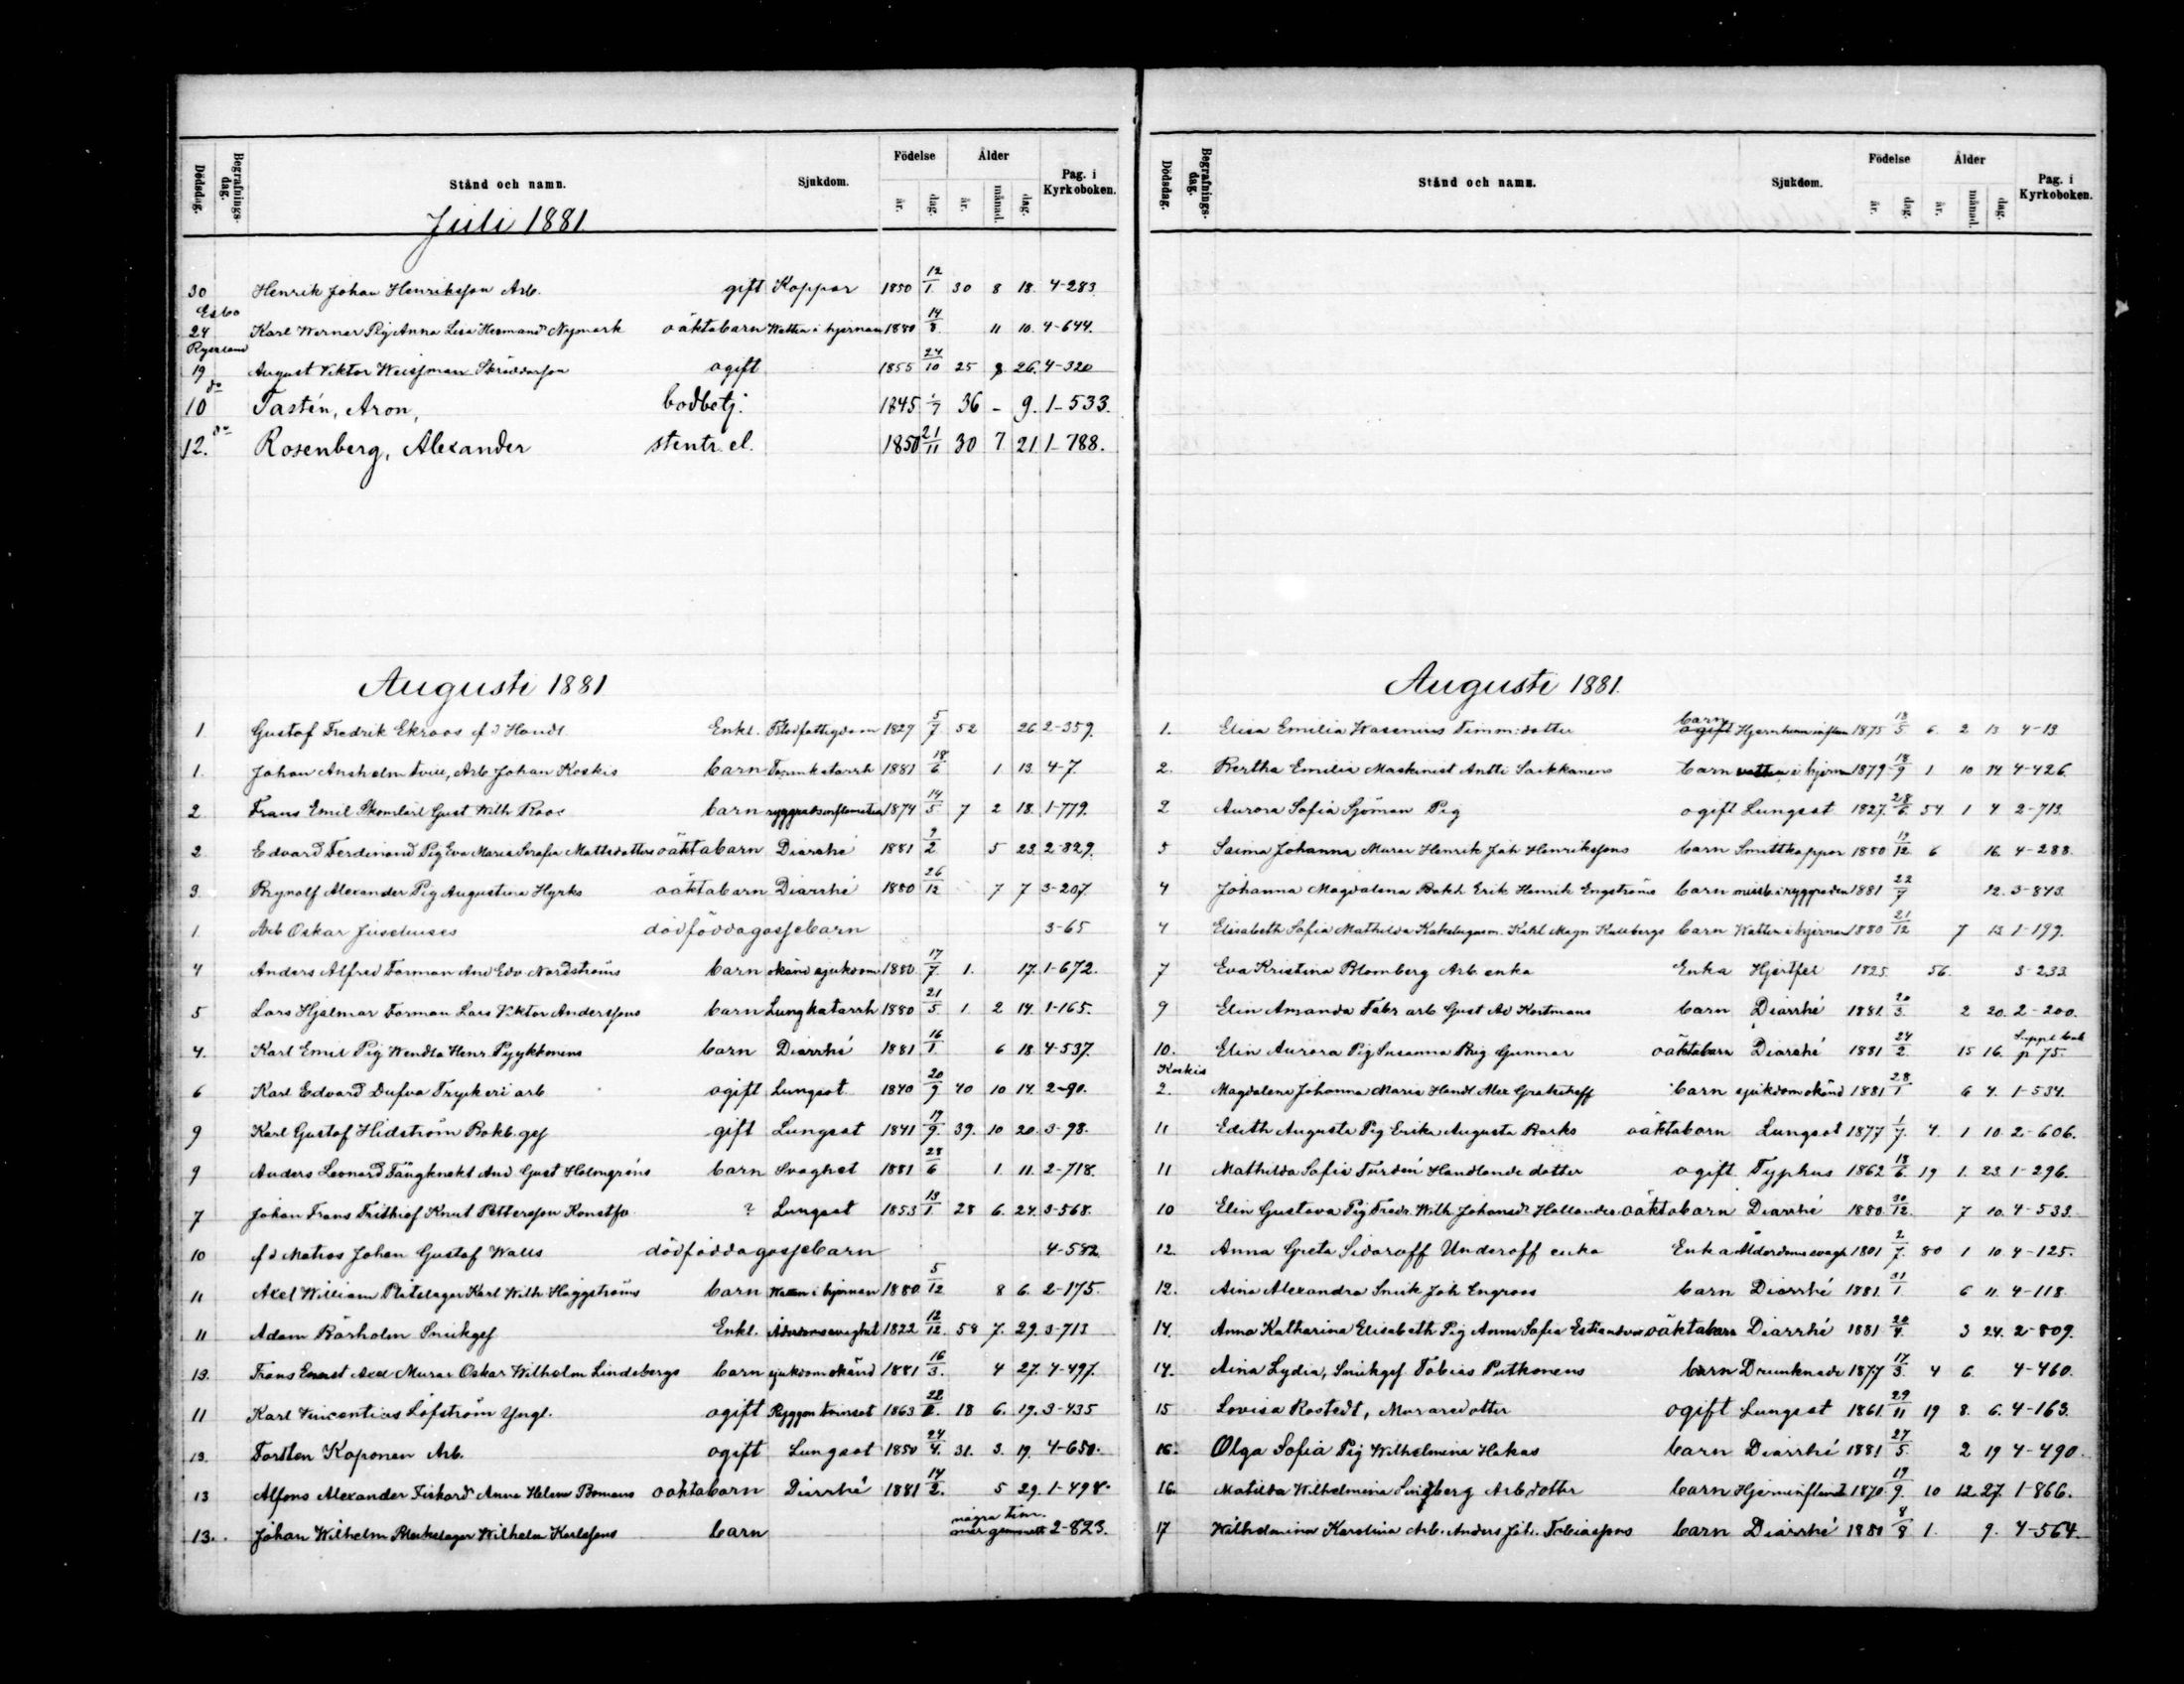 Dödsdag. Begrafnings-dag. Stånd och namn. Sjukdom. Födelse år. dag. Ålder år. månad. dag. Pag. i Kyrkoboken.
Juli 1881
30 Henrik Johan Henriksson Arb. gift Koppor 1850 12/1 30 8 18. 4-283
Esbo
24 Karl Werner Pig Anna Lisa Hermansd Nymark oäktabarn Watten i hjernan 1880 14/8 11 10. 4-644.
Ryssland
19 August Viktor Weissman Skräddarson ogift 1855 24/10 25 8 26. 4-320
do
10 Tastén, Aron, bodbetj. 1845 1/7 36 - 9. 1-533.
do
12. Rosenberg, Alexander stentr. el. 1850 21/11 30 7 21 1-788.
Augusti 1881
1 Gustaf Fredrik Ekroos f d Handl Enkl. Blodfattigdom 1829 5/7 52 26 2-359.
1. Johan Anshelm tvill, Arb. Johan Koskis barn Tarmkatarrh 1881 18/6 1 13. 4-7.
2 Frans Emil Gust Wilh Roos barn ryggradsinflamation 1874 14/5 7 2 18. 1-779.
2 Edvard Ferdinand Pig Eva Maria Serafia Mattsdotters oäktabarn Diarrhé 1881 9/2 5 23. 2-829.
3. Brynolf Alexander Pig Augustina Hyrks oäktabarn Diarrhé 1880 26/12 7 7 3-207.
1. Arb Oskar Juselius dödföddagossebarn 3-65
4 Anders Alfred Forman And Edv Nordströms barn okänd sjukdom 1880 17/7. 1. 17. 1-672.
5 Lars Hjalmar Forman Lars Viktor Anderssons barn Lungkatarrh 1880 21/5. 1. 2 14. 1-165.
4. Karl Emil Pig Wendla Henr. Pyykkonens barn Diarrhé 1881 16/1. 6 18. 4-537.
6 Karl Edvard Dufva Tryckeri arb ogift Lungsot 1840 20/9 40 10 14. 2-90.
9 Karl Gustaf Hidström Bokb. gesj gift Lungsot 1841 19/9. 39. 10 20. 3-98.
9 Anders Leonard Fångknekt And Gust Holmgréns barn Svaghet 1881 28/6 1. 11. 2-718.
7 Johan Frans Frithiof Knut Pettersson Konstfo ? Lungsot 1853 13/1 28 6. 24. 3-568.
10 f d Matros Johan Gustaf Walls dödföddagossebarn 4-582
11 Axel William Plåtslagar Karl Wilh Häggströms barn Watten i hjernan 1880 5/12 8 6. 2-175.
11 Adam Bärholm Snickgesj Enkl. Ålderdomsvaghet 1822 12/12. 58 7. 29. 3-713
13. Frans Ernst Axel Murar Oskar Wilhelm Lindebergs barn sjukdom okänd 1881 16/3. 4 27. 4-497.
11 Karl Vincentius Löfström Yngl. ogift Ryggmärgstvinsot 1863 22/1. 18 6. 19. 3-435
13. Torsten Koponen Arb. ogift Lungsot 1850 24/4. 31. 3. 19. 4-650.
13 Alfons Alexander Fiskard Anna Helena Bomans oäktabarn Diarrhé 1881 14/2. 5 29. 1-498.
13. Johan Wilhelm Bleckslagar Wilhelm Karlssons barn några tim. 2-823.
Dödsdag. Begrafnings-dag. Stånd och namn. Sjukdom. Födelse år. dag. Ålder år. månad. dag. Pag. i Kyrkoboken.
Augusti 1881.
1. Elisa Emilia Wasenius Timm:dotter barn ogift Hjernhinneinflam 1875 13/5 6. 2 13 4-13
2. Bertha Emilia Maskinist Antti Saikkanens barn watten i hjernan 1879 18/9 1 10 14 4-426.
2 Aurora Sofia Sjöman Pig ogift Lungsot 1827. 28/6. 54 1 4 2-713.
3 Saima Johanna Murar Henrik Joh Henrikssons barn Smittkoppor 1880 19/12 6 16. 4-288.
4 Johanna Magdalena Bokh Erik Henrik Engströms barn i ryggraden 1881 22/7 12. 3-843.
4 Elisabeth Sofia Mathilda Kakelugnsm. Karl Magn Kullbergs barn Watten i hjernan 1880 21/12 7 13 1-199.
7 Eva Kristina Blomberg Arb. enka Enka Hjertfel 1825. 56. 3-233
9 Elin Amanda Fabr arb Gust Ad Kostmans barn Diarrhé 1881. 20/3. 2 20. 2-200.
10. Elin Aurora Pig Susanna Brig Gunnar oäktabarn Diarrhé 1881 24/2. 15 16. Suppl bok p 75.
Koskis
2. Magdalena Johanna Maria Handl Alex Gratscheff barn sjukdom okänd 1881 28/1 6 4. 1-534.
11 Edith Augusta Pig Erika Augusta Backs oäktabarn Lungsot 1877 1/7. 4. 1 10. 2-606.
11 Mathilda Sofia Turdén Handlande dotter ogift Typhus 1862 18/6. 19 1. 23. 1-296.
10 Elin Gustava Pig Fredr. Wilh Johansd Hollander oäktabarn Diarrhé 1880 30/12. 7 10. 4-533.
12. Anna Greta Sidoroff Underoff enka Enka Ålderdomssvagh 1801 2/7. 80 1 10 4-125.
12. Aina Alexandra Snick Joh Engroos barn Diarrhé 1881. 31/1. 6 11. 4-118.
14. Anna Katharina Elisabeth Pig Anna Sofia Estlander oäktabarn Diarrhé 1881. 20/4. 3 24. 2-809.
14. Aina Lydia, Snickgesj Tobias Putkonens barn Drunknade 1877 17/3. 4 6. 4-460.
15 Lovisa Rostedt, Muraredotter ogift Lungsot 1861. 29/11 19 8. 6. 4-163.
16. Olga Sofia Pig Wilhelmina Hakas barn Diarrhé 1881. 27/5. 2 19 4-490.
16. Matilda Wilhelmina Lindberg Arb.dotter barn Hjerninflamat 1870. 19/9. 10 12. 27. 1-866.
17 Wilhelmina Karolina Arb. Anders Joh. Tobiassons barn Diarrhé 1880 8/8 1. 9. 4-564.